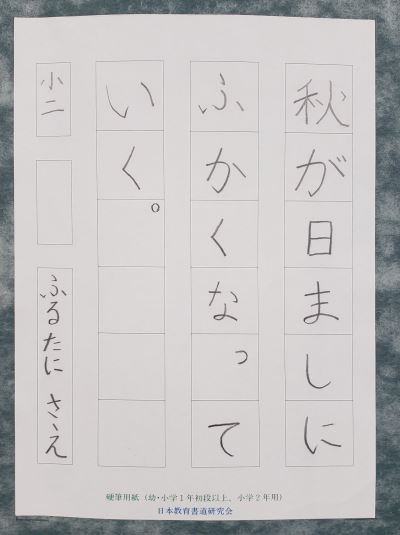 秋が日ましに
ふかくなって
いく。
小二
ふるたに さえ
硬筆用紙（幼・小学1年初段以上、小学2年用）
日本教育書道研究会